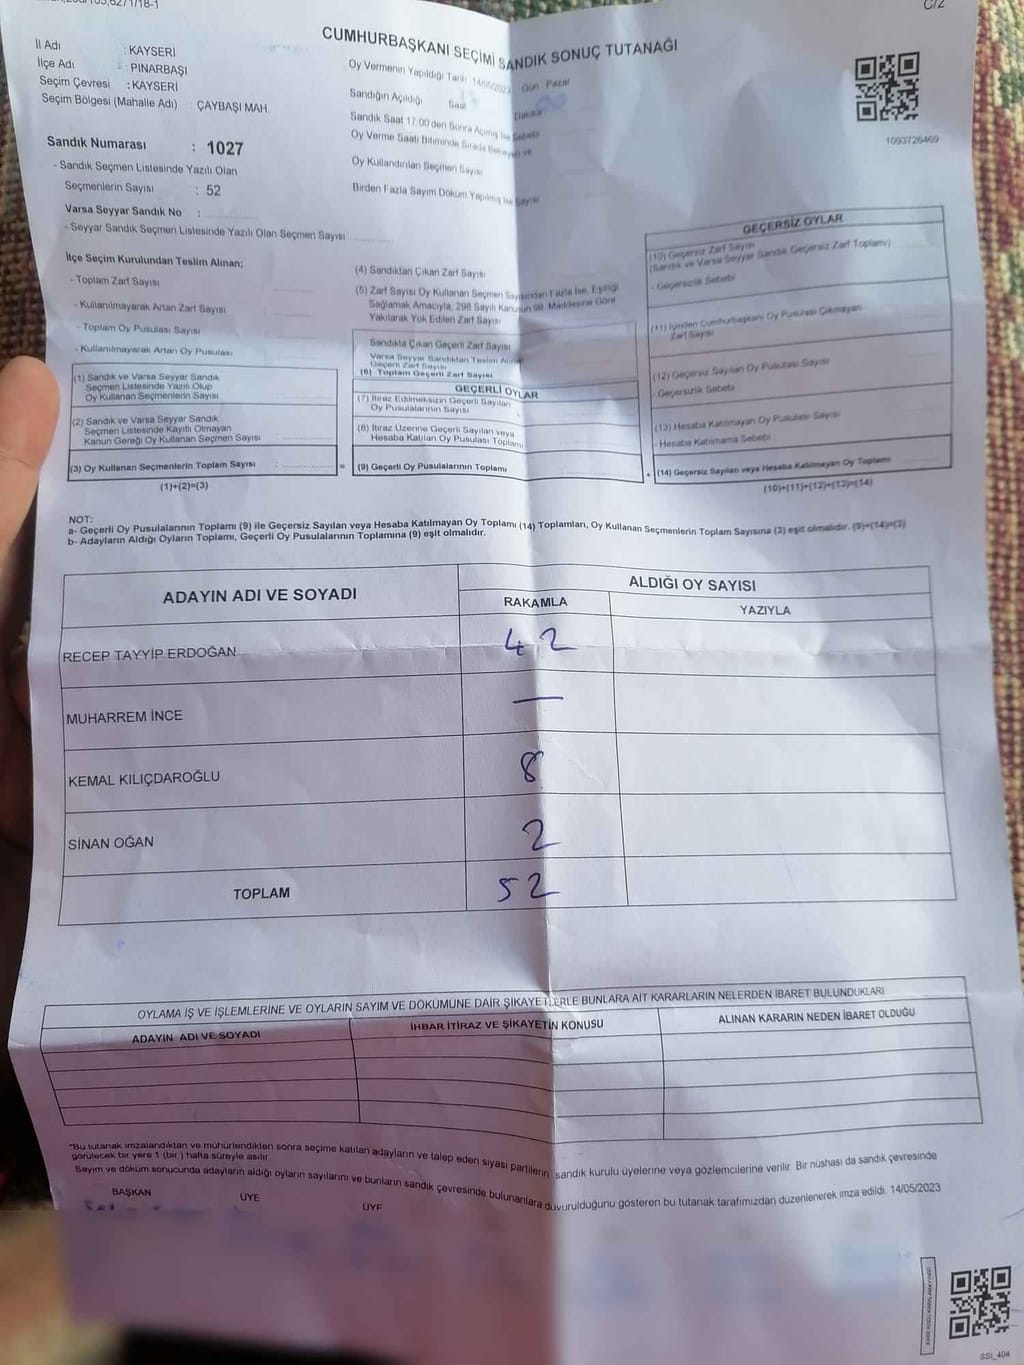 C/2
CUMHURBAŞKANI SEÇİMİ SANDIK SONUÇ TUTANAĞI
İl Adı : KAYSERİ
İlçe Adı : PINARBAŞI
Seçim Çevresi : KAYSERİ
Seçim Bölgesi (Mahalle Adı) : ÇAYBAŞI MAH.
Sandık Numarası : 1027
- Sandık Seçmen Listesinde Yazılı Olan
Seçmenlerin Sayısı : 52
Varsa Seyyar Sandık No :
- Seyyar Sandık Seçmen Listesinde Yazılı Olan Seçmen Sayısı
Oy Vermenin Yapıldığı Tarih 14/05/2023 Gün Pazar
Sandığın Açıldığı Saat Dakika
Sandık Saat 17:00'den Sonra Açılmış İse Sebebi
Oy Verme Saati Bitiminde Sırada Bekleyen ve
Oy Kullandırılan Seçmen Sayısı
Birden Fazla Sayım Döküm Yapılmış İse Sayısı
1093726469
İlçe Seçim Kurulundan Teslim Alınan;
- Toplam Zarf Sayısı
- Kullanılmayarak Artan Zarf Sayısı
- Toplam Oy Pusulası Sayısı
- Kullanılmayarak Artan Oy Pusulası
(1) Sandık ve Varsa Seyyar Sandık
Seçmen Listesinde Yazılı Olup
Oy Kullanan Seçmenlerin Sayısı
(2) Sandık ve Varsa Seyyar Sandık
Seçmen Listesinde Kayıtlı Olmayan
Kanun Gereği Oy Kullanan Seçmen Sayısı
(3) Oy Kullanan Seçmenlerin Toplam Sayısı
(1)+(2)=(3)
(4) Sandıktan Çıkan Zarf Sayısı
(5) Zarf Sayısı Oy Kullanan Seçmen Sayısından Fazla İse, Eşitliği
Sağlamak Amacıyla, 298 Sayılı Kanunun 98. Maddesine Göre
Yakılarak Yok Edilen Zarf Sayısı
Sandıkta Çıkan Geçerli Zarf Sayısı
Varsa Seyyar Sandıktan Teslim Alınan
Geçerli Zarf Sayısı
(6) Toplam Geçerli Zarf Sayısı
GEÇERLİ OYLAR
(7) İtiraz Edilmeksizin Geçerli Sayılan
Oy Pusulalarının Sayısı
(8) İtiraz Üzerine Geçerli Sayılan veya
Hesaba Katılan Oy Pusulası Toplamı
= (9) Geçerli Oy Pusulalarının Toplamı
GEÇERSİZ OYLAR
(10) Geçersiz Zarf Sayısı
(Sandık ve Varsa Seyyar Sandık Geçersiz Zarf Toplamı)
- Geçersizlik Sebebi
(11) İçinden Cumhurbaşkanı Oy Pusulası Çıkmayan
Zarf Sayısı
(12) Geçersiz Sayılan Oy Pusulası Sayısı
- Geçersizlik Sebebi
(13) Hesaba Katılmayan Oy Pusulası Sayısı
- Hesaba Katılmama Sebebi
+ (14) Geçersiz Sayılan veya Hesaba Katılmayan Oy Toplamı
(10)+(11)+(12)+(13)=(14)
NOT:
a- Geçerli Oy Pusulalarının Toplamı (9) ile Geçersiz Sayılan veya Hesaba Katılmayan Oy Toplamı (14) Toplamları, Oy Kullanan Seçmenlerin Toplam Sayısına (3) eşit olmalıdır. (9)+(14)=(3)
b- Adayların Aldığı Oyların Toplamı, Geçerli Oy Pusulalarının Toplamına (9) eşit olmalıdır.
ADAYIN ADI VE SOYADI
ALDIĞI OY SAYISI
RAKAMLA YAZIYLA
RECEP TAYYİP ERDOĞAN 42
MUHARREM İNCE —
KEMAL KILIÇDAROĞLU 8
SİNAN OĞAN 2
TOPLAM 52
OYLAMA İŞ VE İŞLEMLERİNE VE OYLARIN SAYIM VE DÖKÜMÜNE DAİR ŞİKAYETLERLE BUNLARA AİT KARARLARIN NELERDEN İBARET BULUNDUKLARI
ADAYIN ADI VE SOYADI İHBAR İTİRAZ VE ŞİKAYETİN KONUSU ALINAN KARARIN NEDEN İBARET OLDUĞU
*Bu tutanak imzalandıktan ve mühürlendikten sonra seçime katılan adayların ve talep eden siyasi partilerin sandık kurulu üyelerine veya gözlemcilerine verilir. Bir nüshası da sandık çevresinde
görülecek bir yere 1 (bir) hafta süreyle asılır.
Sayım ve döküm sonucunda adayların aldığı oyların sayılarını ve bunların sandık çevresinde bulunanlara duyurulduğunu gösteren bu tutanak tarafımızdan düzenlenerek imza edildi. 14/05/2023
BAŞKAN ÜYE ÜYE
SSI_404